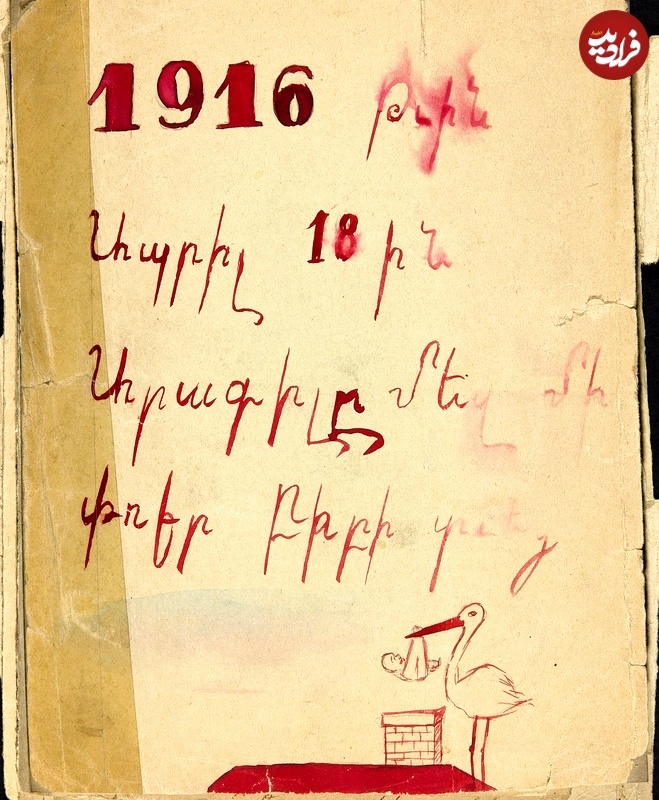 فرادید
1916 թւին
Ապրիլ 18 ին
Արագիլը մեզ մի
փոքր